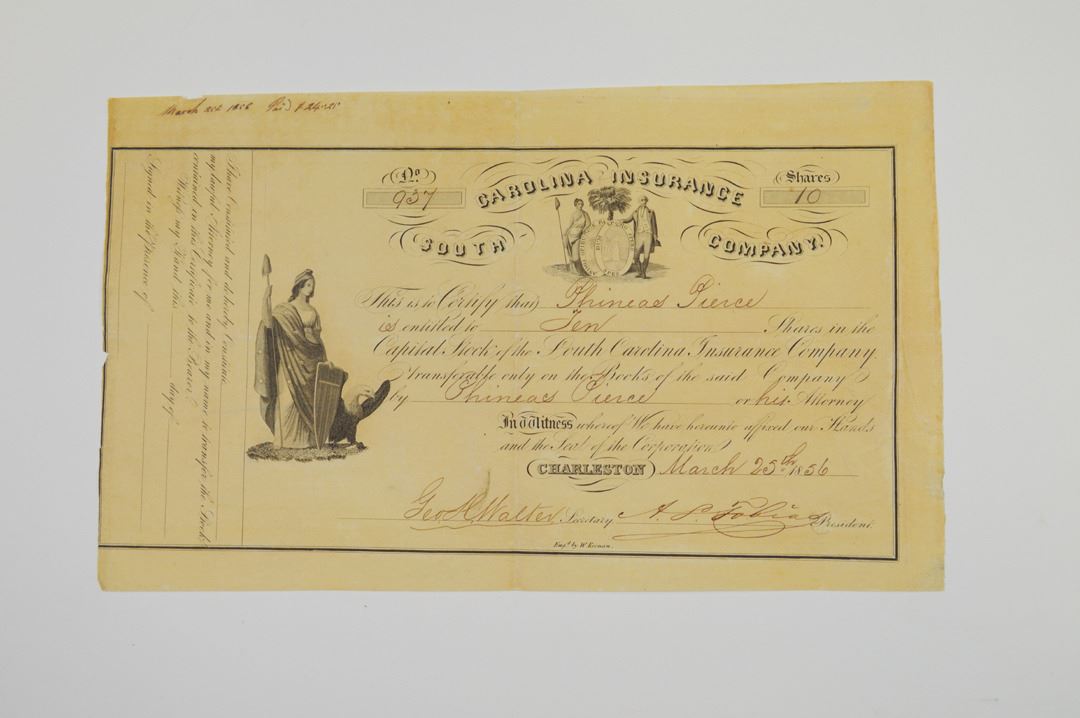 March 25th 1856 Paid $24.25
No 937
CAROLINA INSURANCE
Shares 10
SOUTH
COMPANY.
This is to Certify that Phineas Pierce
is entitled to Ten Shares in the
Capital Stock of the South Carolina Insurance Company
transferable only on the Books of the said Company
by Phineas Pierce or his Attorney
In Witness whereof We have hereunto affixed our Hands
and the Seal of the Corporation
CHARLESTON March 25th 1856
Geo H Walter Secretary A. L. Tobias President.
Engd by W. Keenan.
I have Constituted and do hereby Constitute
my lawful Attorney for me and in my name to transfer the Stock
contained in this Certificate to the Bearer
Witness my Hand this day of
Signed in the Presence of